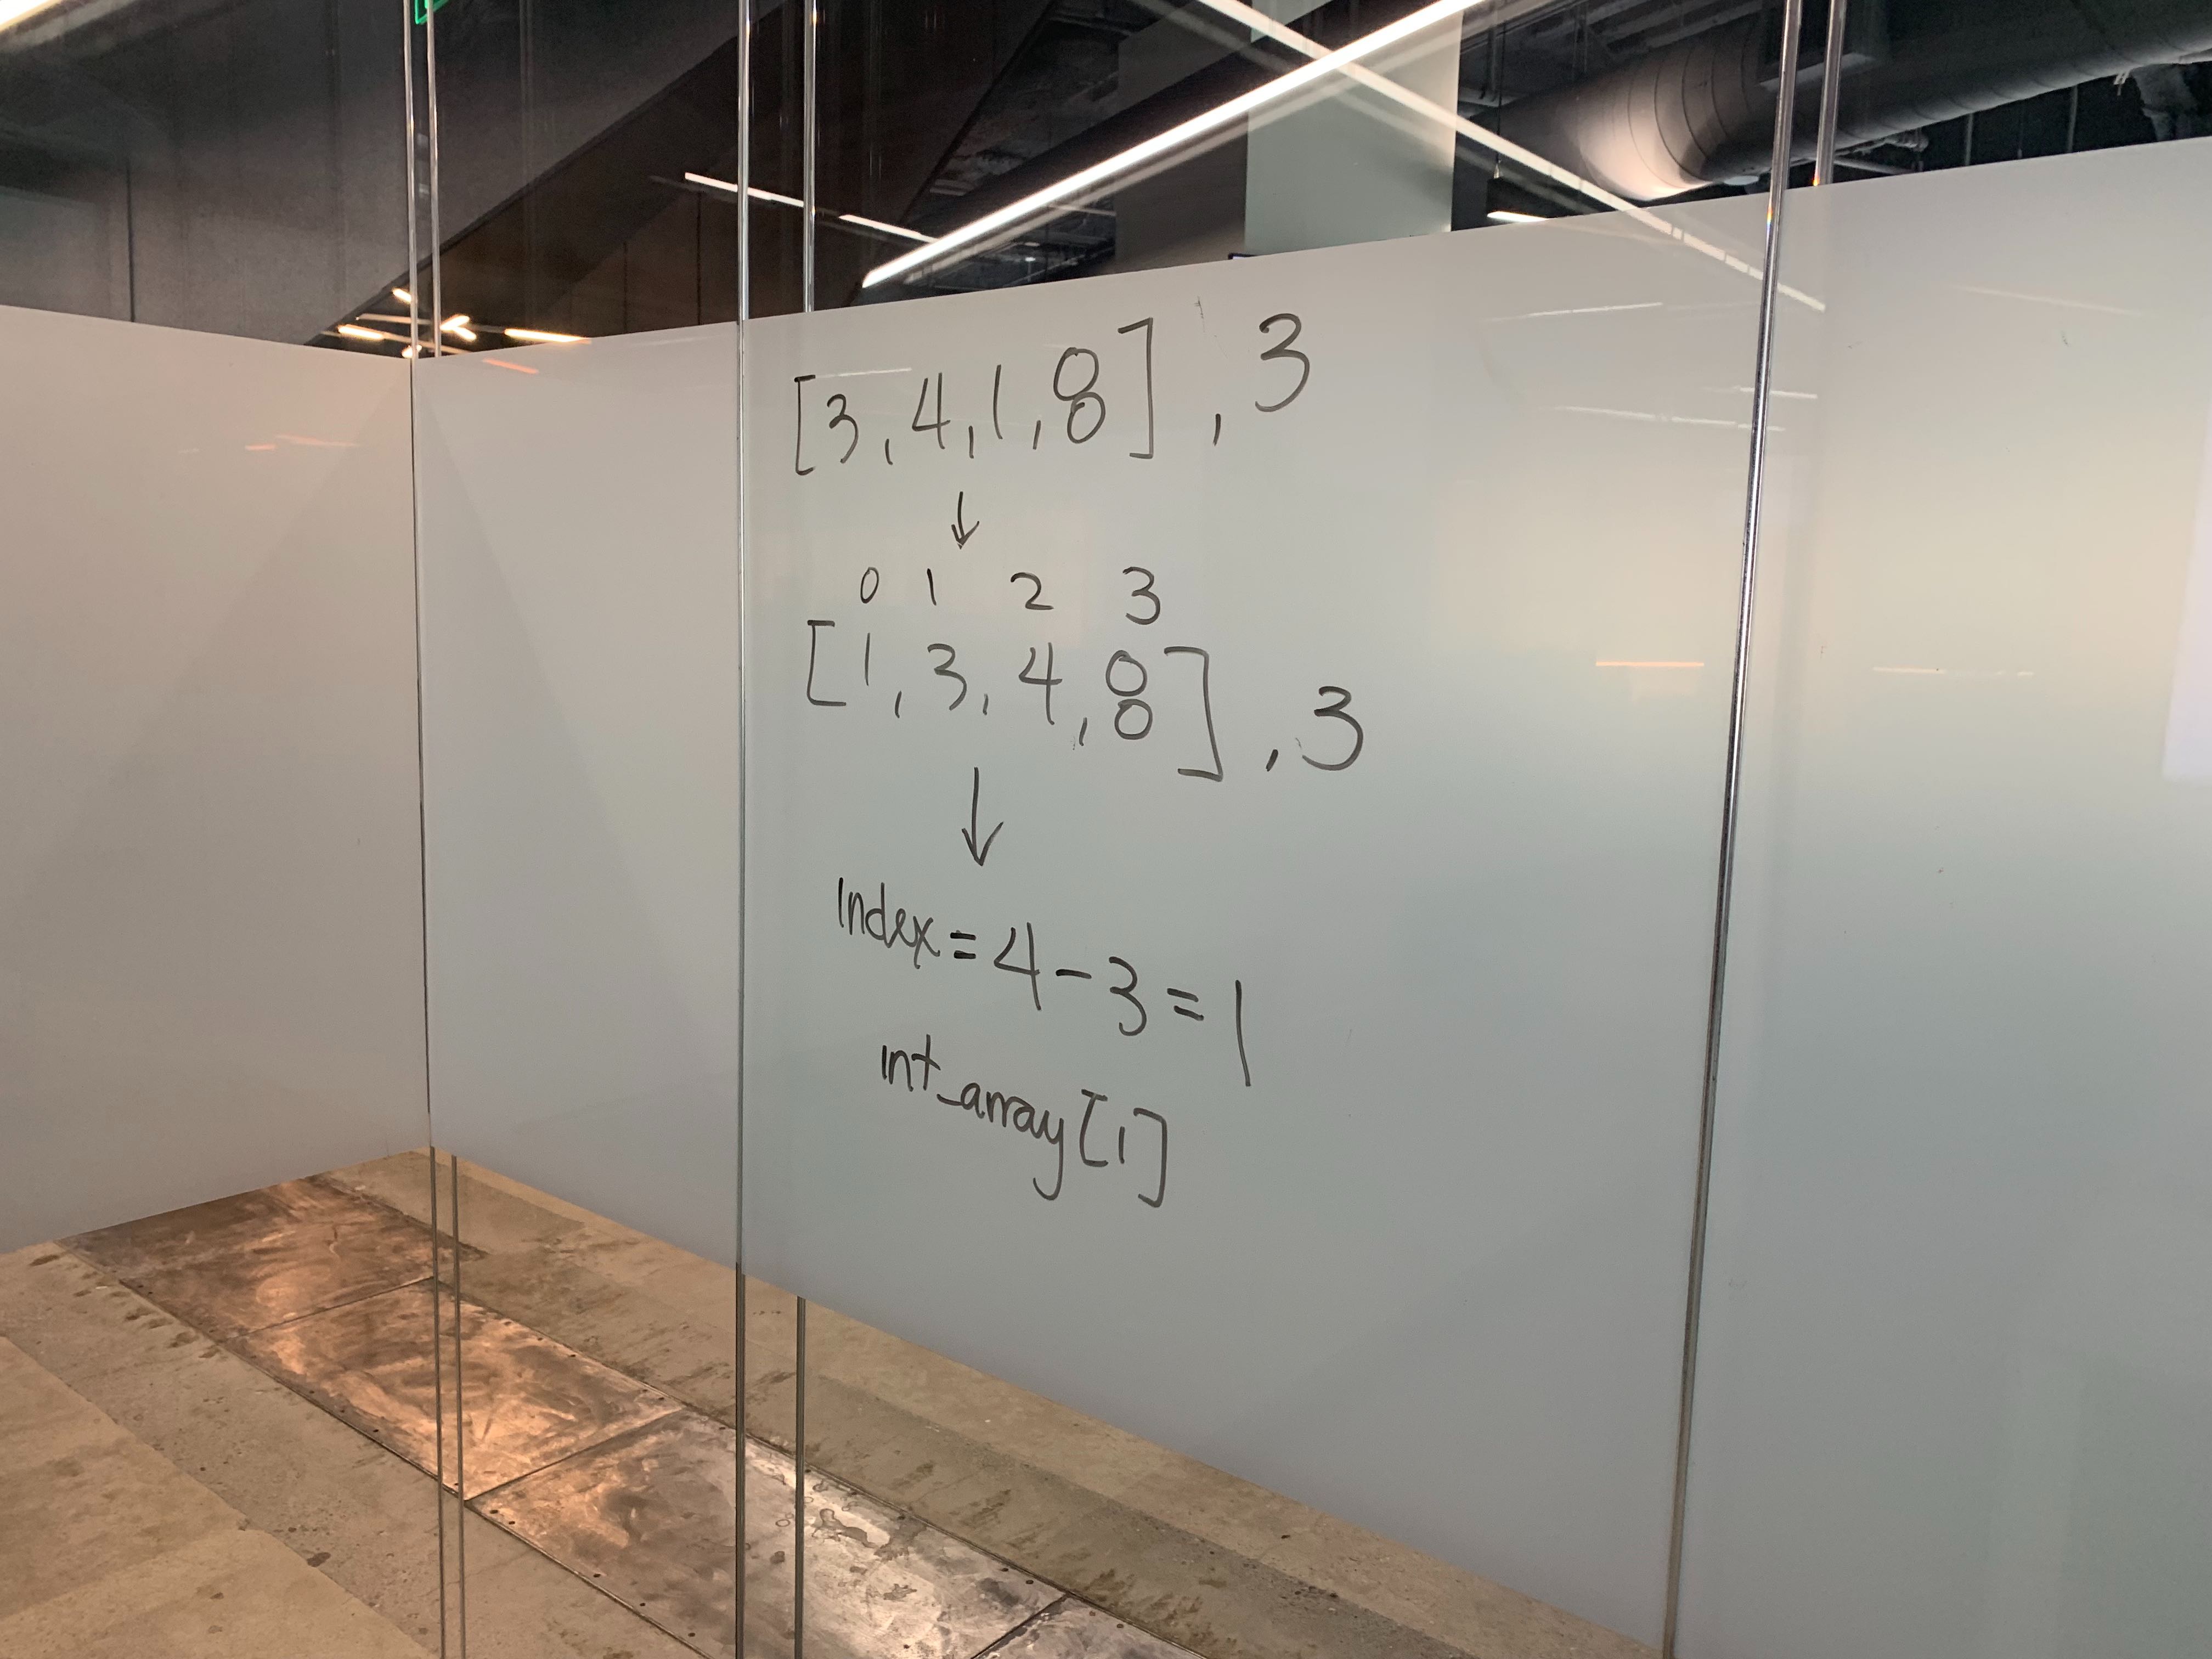 [3,4,1,8],3
↓
0 1 2 3
[1,3,4,8],3
↓
Index=4-3=1
int_array[1]